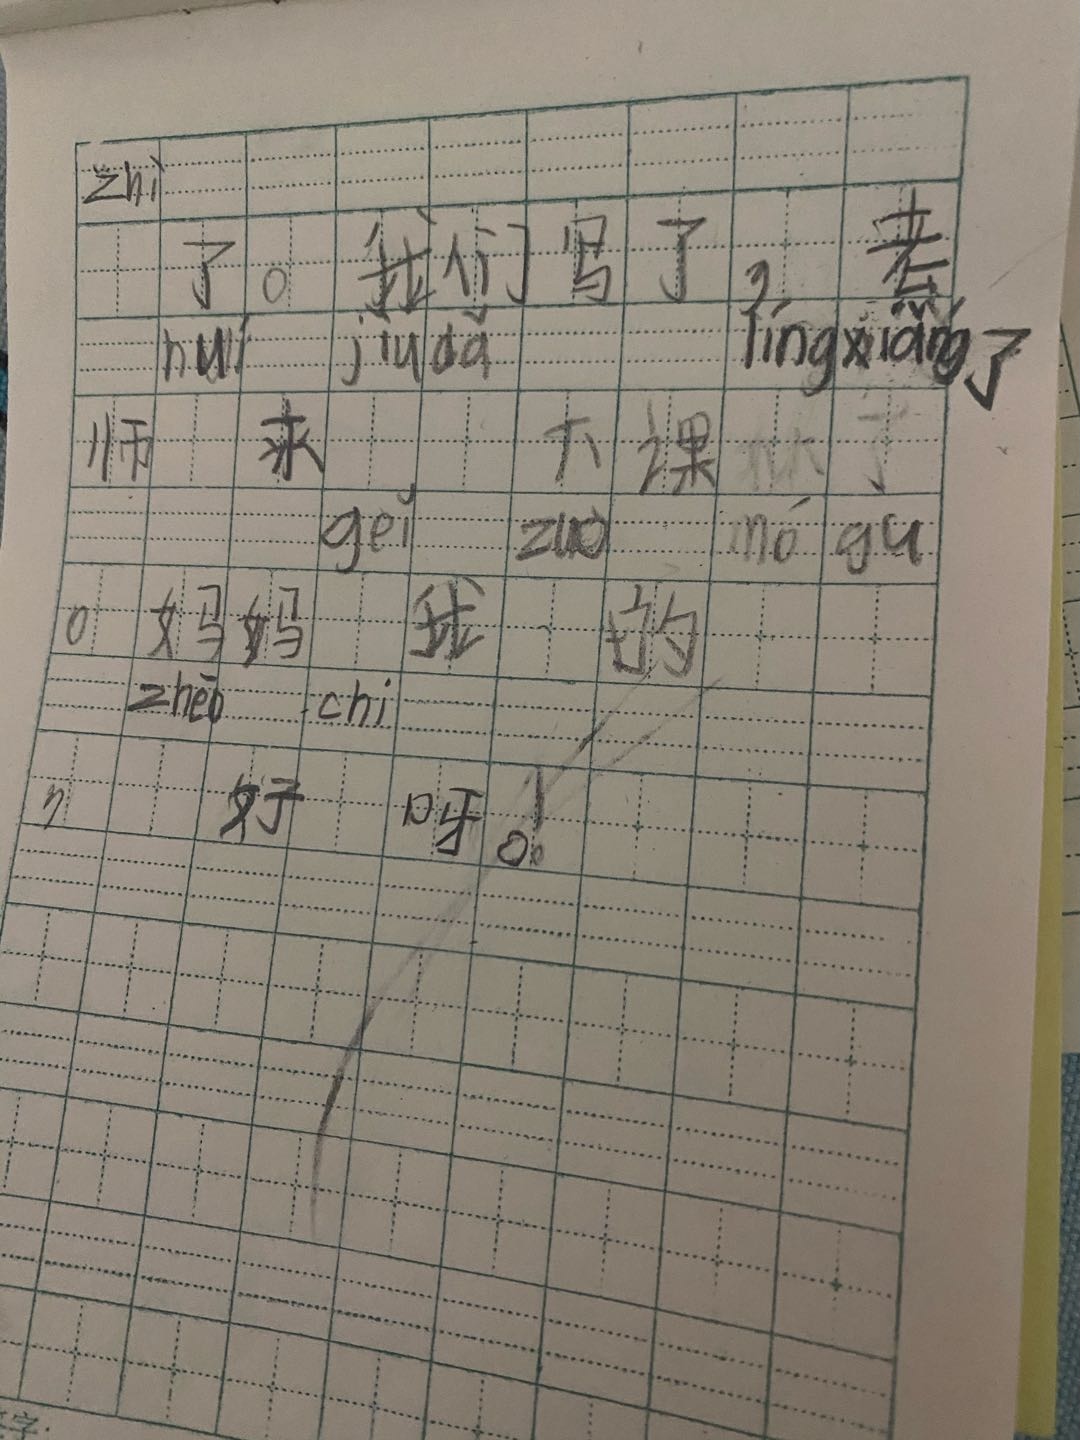 zhì
了。我们写了，老
huí jiu dǎ língxiǎng了
师 来 下课
gěi zuò mó gu
。妈妈 我 的
zhēo chi
， 好 呀！